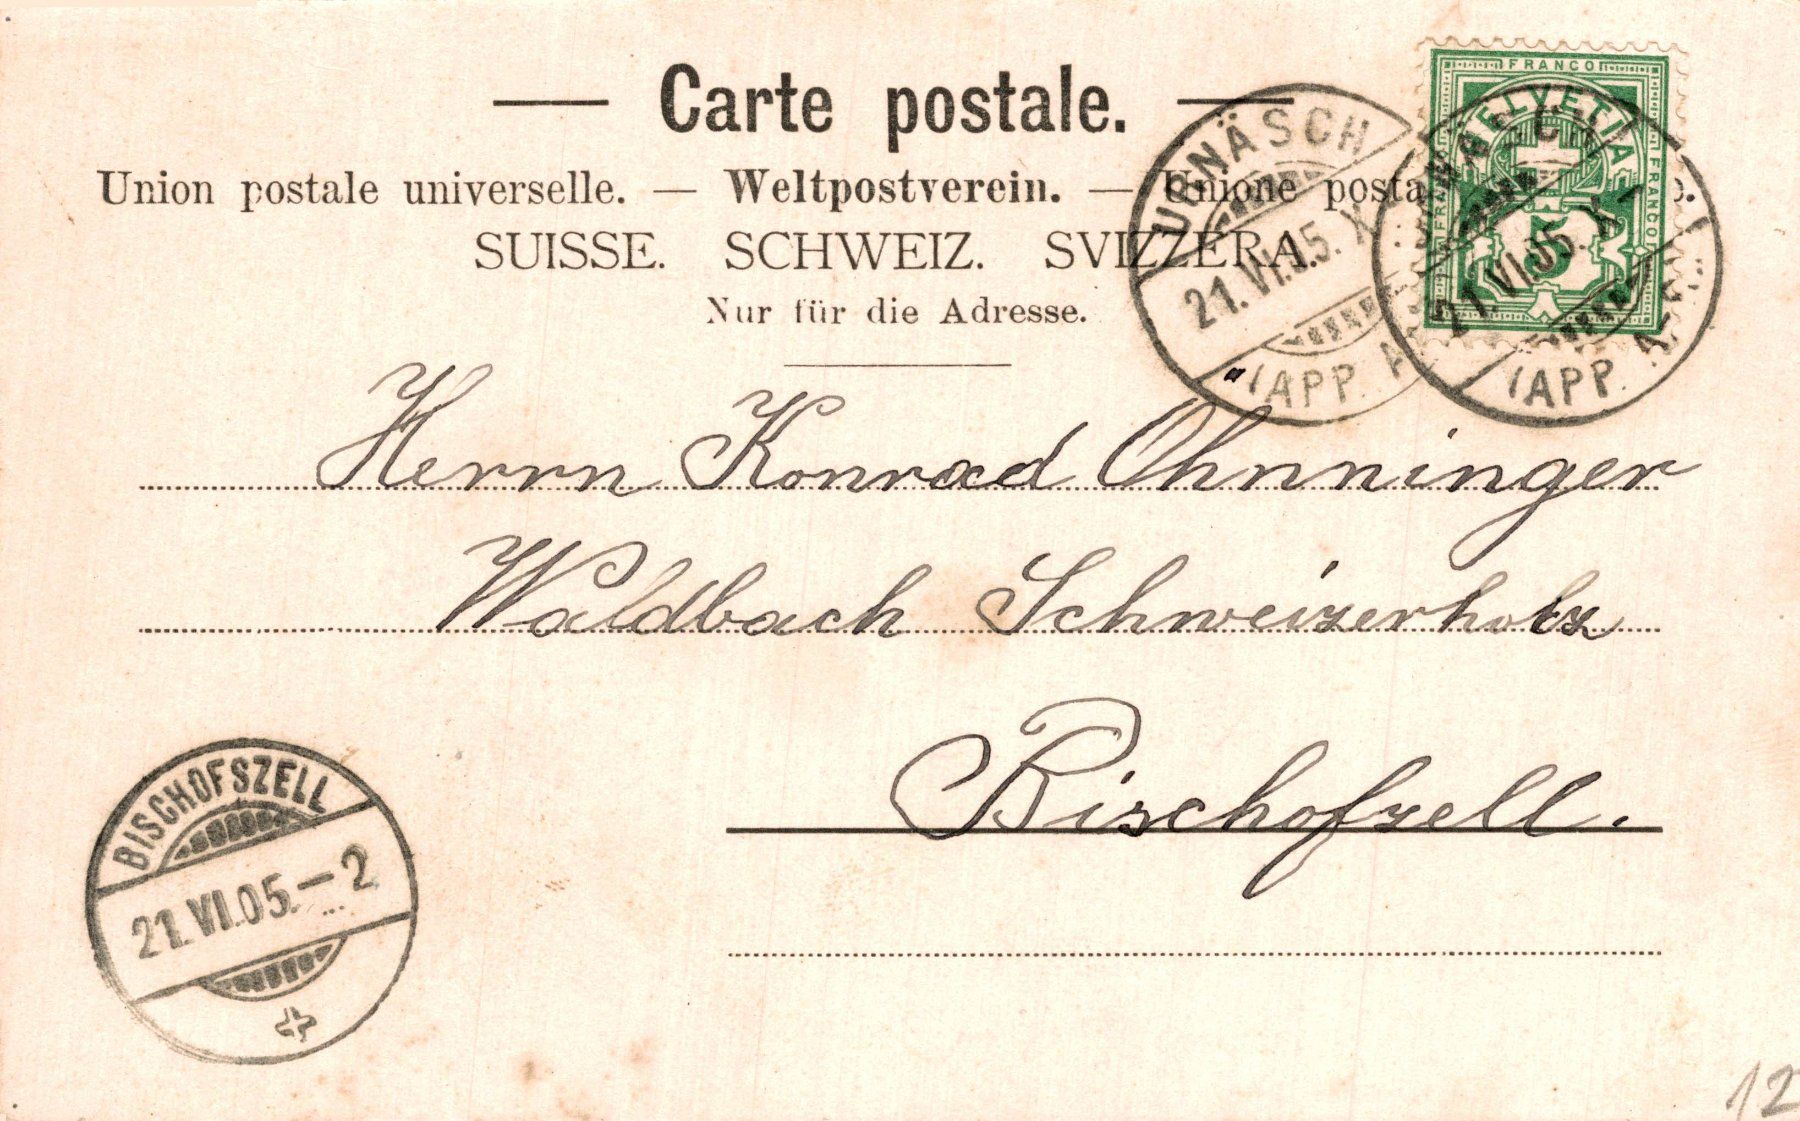 Carte postale.
Union postale universelle. — Weltpostverein. — Unione postale
SUISSE. SCHWEIZ. SVIZZERA.
Nur für die Adresse.
FRANCO
HELVETIA
FRANCO
FRANCO
5
URNÄSCH
21.VI.05. X
(APP. A
URNÄSCH
21.VI.05. X
(APP. A
Herrn Konrad Ohnninger
Waldbach Schweizerholz
Bischofzell.
BISCHOFSZELL
21.VI.05.–2
12